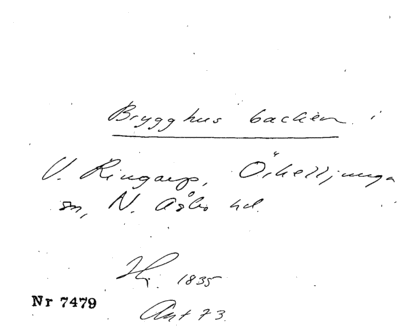 Brygghus backen i
V. Ringarp, Örkelljunga
sn, N. Åsbo hd.
Hj. 1835
Nr 7479
Ant 73.